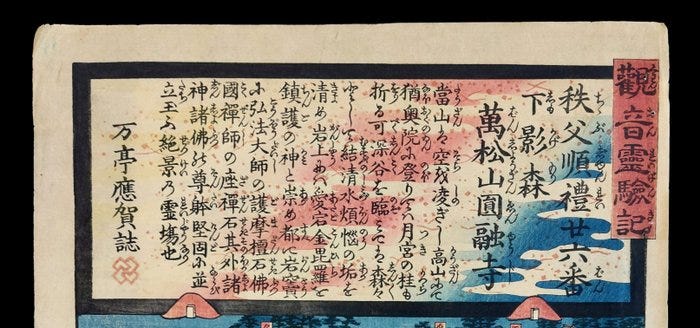 觀音靈驗記
秩父順禮廿六番
下影森
萬松山圓融寺
當山ハ空を凌ぎし高山にて
猶奥院に登りてハ月宮の桂も
折る可く深谷を臨ミてハ森々
として結清水煩惱の垢を
清め岩上にハ愛宕金毘羅を
鎮護の神と崇め都て岩窟
に弘法大師の護摩檀石佛
國禪師の座禪石其外諸
神諸佛の尊躰堅固に並
立玉ふ絶景の靈場也
万亭應賀誌